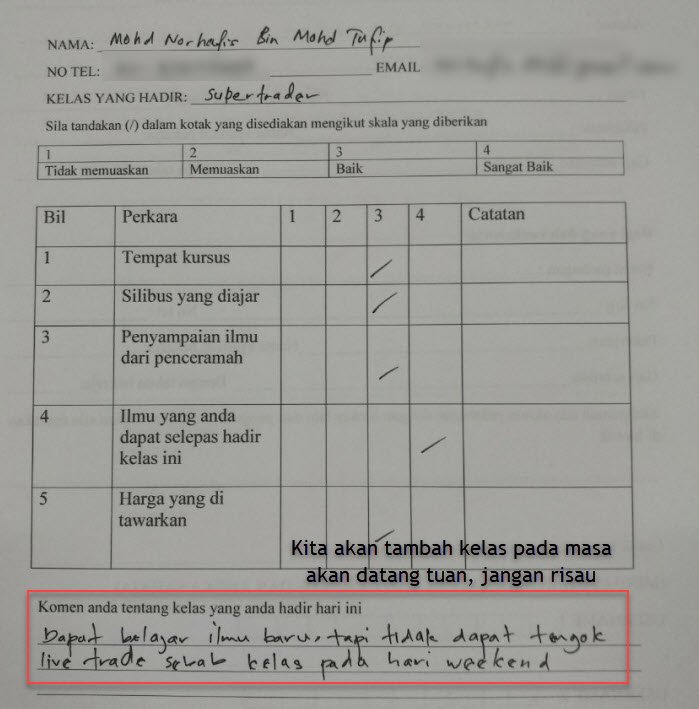 NAMA: Mohd Norhafis Bin Mohd Tufip
NO TEL: EMAIL
KELAS YANG HADIR: supertrader
Sila tandakan (/) dalam kotak yang disediakan mengikut skala yang diberikan
1 2 3 4
Tidak memuaskan Memuaskan Baik Sangat Baik
Bil Perkara 1 2 3 4 Catatan
1 Tempat kursus /
2 Silibus yang diajar /
3 Penyampaian ilmu
dari penceramah /
4 Ilmu yang anda
dapat selepas hadir /
kelas ini
5 Harga yang di
tawarkan /
Kita akan tambah kelas pada masa
akan datang tuan, jangan risau
Komen anda tentang kelas yang anda hadir hari ini
Dapat belajar ilmu baru, tapi tidak dapat tengok
live trade sebab kelas pada hari weekend